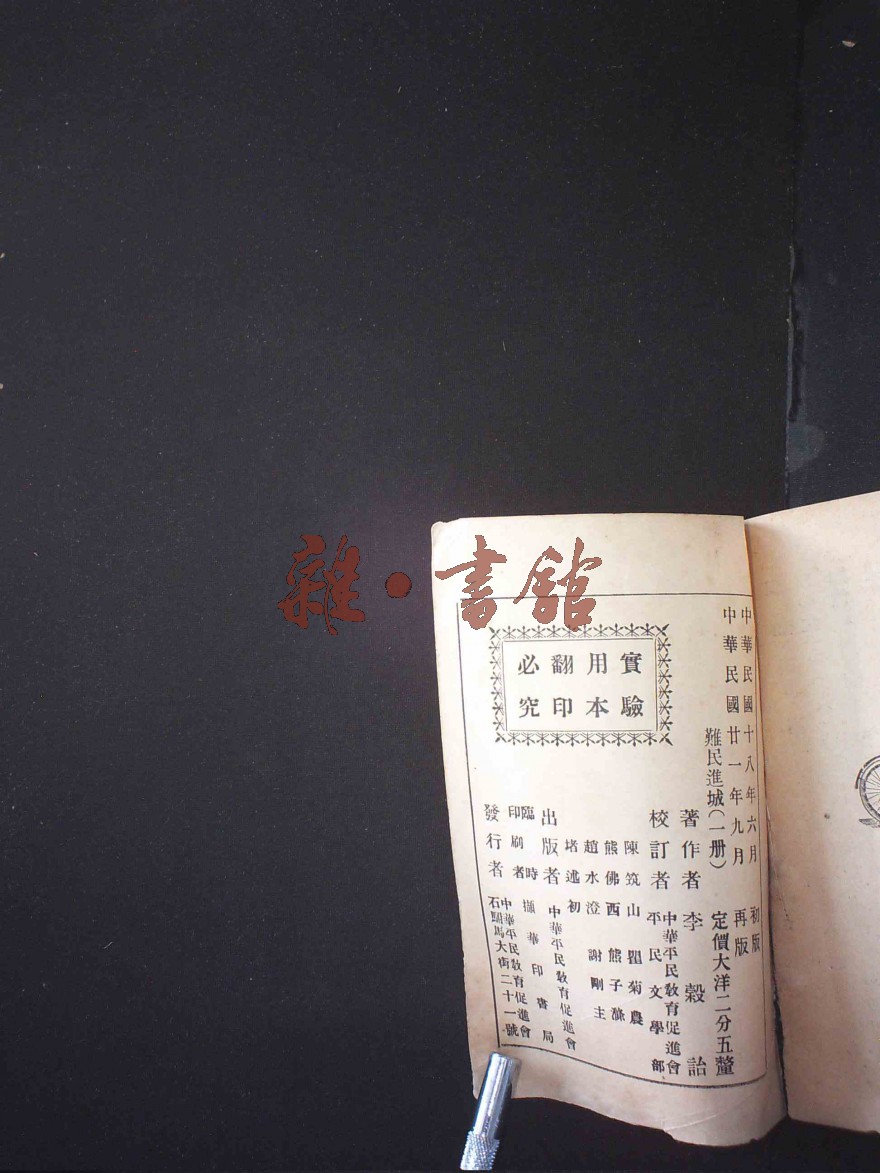 雜·書館
中華民國十八年六月初版
中華民國廿一年九月再版
難民進城(一册)
定價大洋二分五釐
著作者 李穀詒
校訂者 中華平民教育促進會
平民文學部
陳筑山 瞿菊農
熊佛西 熊子滌
趙水澄 謝剛主
堵述初
出版者 中華平民教育促進會
臨時
印刷者 擷華印書局
發行者 中華平民教育促進會
石駙馬大街二十一號
實驗
用本
翻印
必究